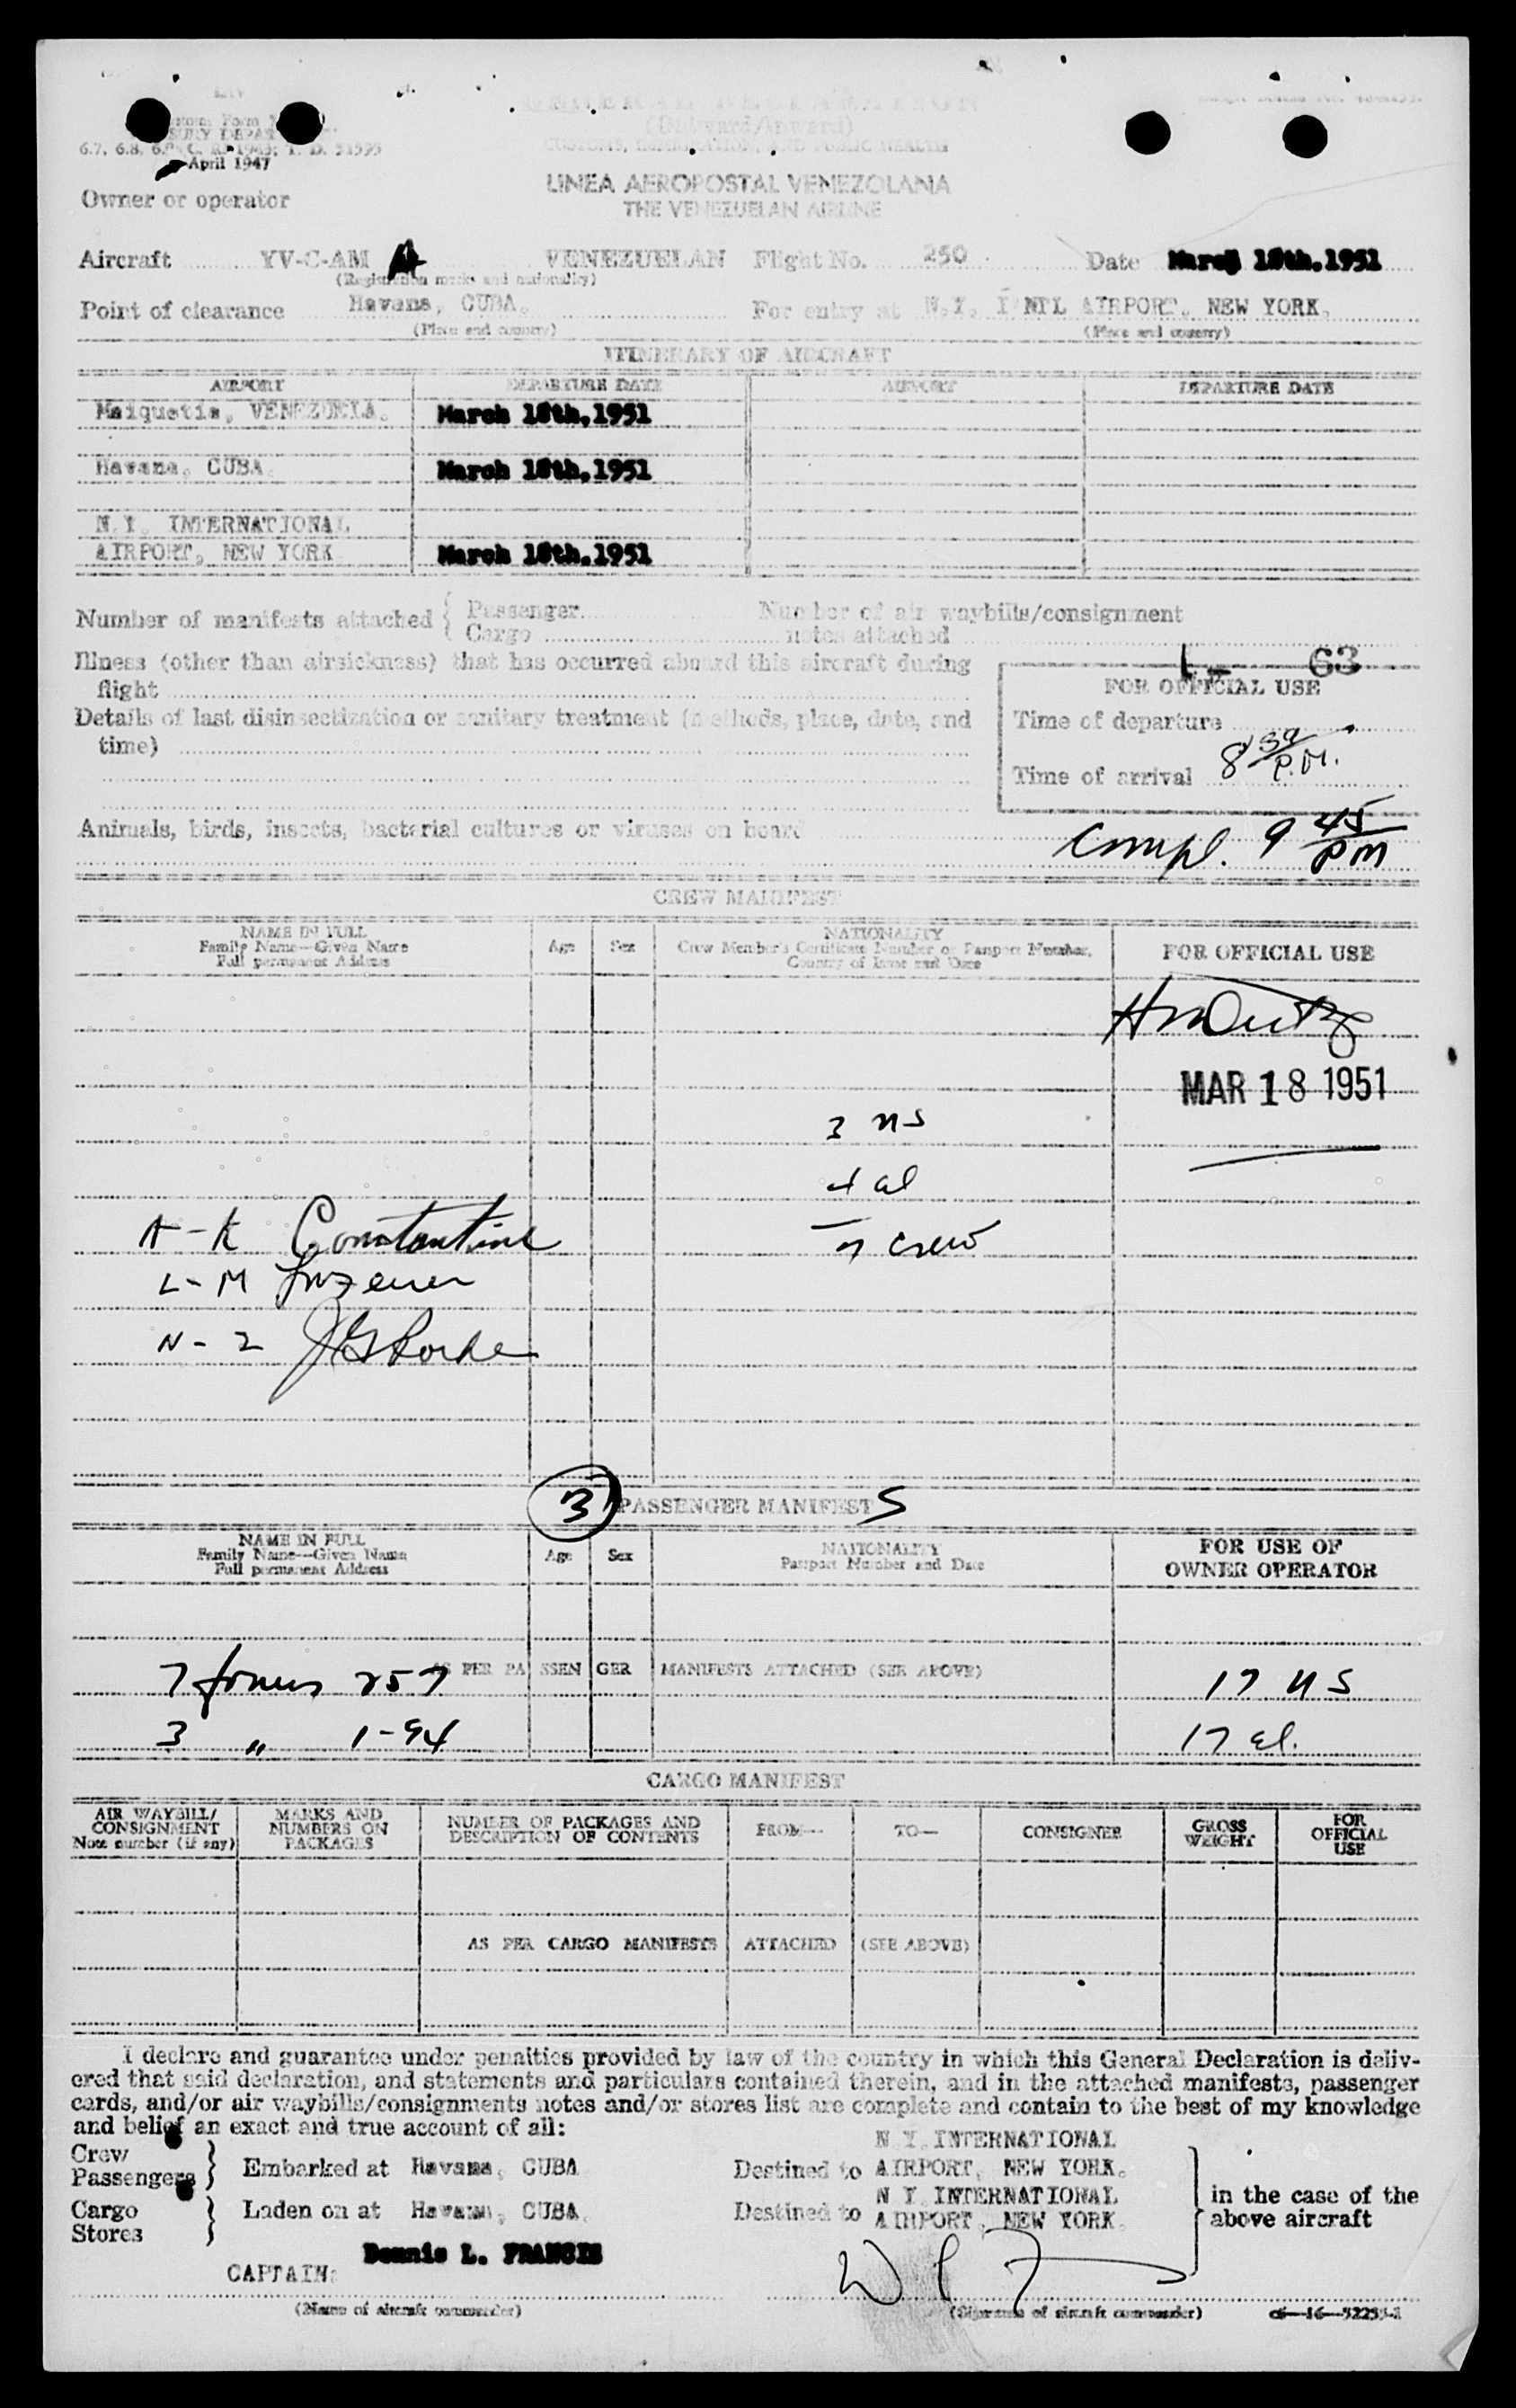 April 1947
Owner or operator
LINEA AEROPOSTAL VENEZOLANA
THE VENEZUELAN AIRLINE
Aircraft YV-C-AM A VENEZUELAN Flight No. 250 Date March 18th.1951
(Registration marks and nationality)
Point of clearance Havana, CUBA. For entry at N.Y. I'NTL AIRPORT, NEW YORK.
(Place and country) (Place and country)
ITINERARY OF AIRCRAFT
AIRPORT DEPARTURE DATE AIRPORT DEPARTURE DATE
Maiquetia, VENEZUELA. March 18th.1951
Havana, CUBA. March 18th.1951
N.Y. INTERNATIONAL
AIRPORT, NEW YORK March 18th.1951
Number of manifests attached { Passenger Number of air waybills/consignment
Cargo notes attached
Illness (other than airsickness) that has occurred aboard this aircraft during
flight
63
FOR OFFICIAL USE
Details of last disinsectization or sanitary treatment (methods, place, date, and
time)
Time of departure
Time of arrival 8 30 P.M.
Animals, birds, insects, bacterial cultures or viruses on board
Compl. 9 45 PM
CREW MANIFEST
NAME IN FULL
Family Name—Given Name
Full permanent Address
Age Sex
NATIONALITY
Crew Member's Certificate Number or Passport Number,
Country of Issue and Date
FOR OFFICIAL USE
MAR 18 1951
3 US
4 al
7 crew
A-K Constantine
L-M
N-Z
3 PASSENGER MANIFESTS
NAME IN FULL
Family Name—Given Name
Full permanent Address
Age Sex
NATIONALITY
Passport Number and Date
FOR USE OF
OWNER OPERATOR
AS PER PASSENGER MANIFESTS ATTACHED (SEE ABOVE)
7 forms 257 17 US
3 " 1-94 17 al.
CARGO MANIFEST
AIR WAYBILL/
CONSIGNMENT
Note number (if any)
MARKS AND
NUMBERS ON
PACKAGES
NUMBER OF PACKAGES AND
DESCRIPTION OF CONTENTS
FROM—
TO—
CONSIGNEE
GROSS
WEIGHT
FOR
OFFICIAL
USE
AS PER CARGO MANIFESTS ATTACHED (SEE ABOVE)
I declare and guarantee under penalties provided by law of the country in which this General Declaration is deliv-
ered that said declaration, and statements and particulars contained therein, and in the attached manifests, passenger
cards, and/or air waybills/consignments notes and/or stores list are complete and contain to the best of my knowledge
and belief an exact and true account of all:
Crew
Passengers } Embarked at Havana, CUBA Destined to N Y INTERNATIONAL AIRPORT, NEW YORK.
Cargo
Stores } Laden on at Havana, CUBA. Destined to N Y INTERNATIONAL AIRPORT, NEW YORK.
in the case of the
above aircraft
Dennis L. FRANCIS
CAPTAIN:
(Name of aircraft commander) (Signature of aircraft commander)